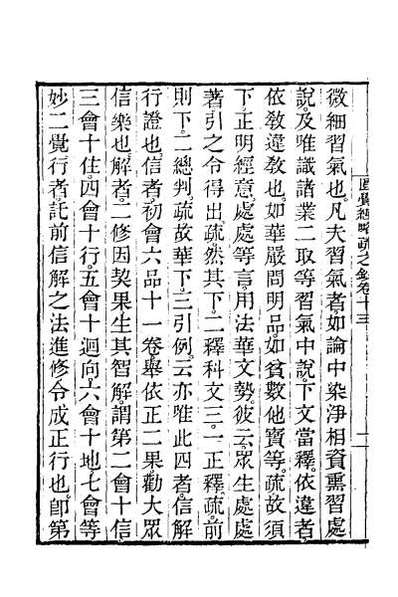 圓覺經略疏之鈔卷十三
微細習氣也。凡夫習氣者。如論中染淨相資熏習處
說。及唯識諸業二取等習氣中說。下文當釋。依違者。
依敎違敎也。如華嚴問明品。如貧數他寶等。疏故須
下。正明經意。處處等言。用法華文勢。彼云。眾生處處
著。引之令得出。疏然其下。二釋科文三。一正釋。疏前
則下。二總判。疏故華下。三引例。云亦唯此四者。信解
行證也。信者。初會六品十一卷。舉依正二果。勸大眾
信樂也。解者。二修因契果生其智解。謂第二會十信
三會十住。四會十行。五會十迴向。六會十地。七會等
妙二覺。行者。託前信解之法進修。令成正行也。卽第